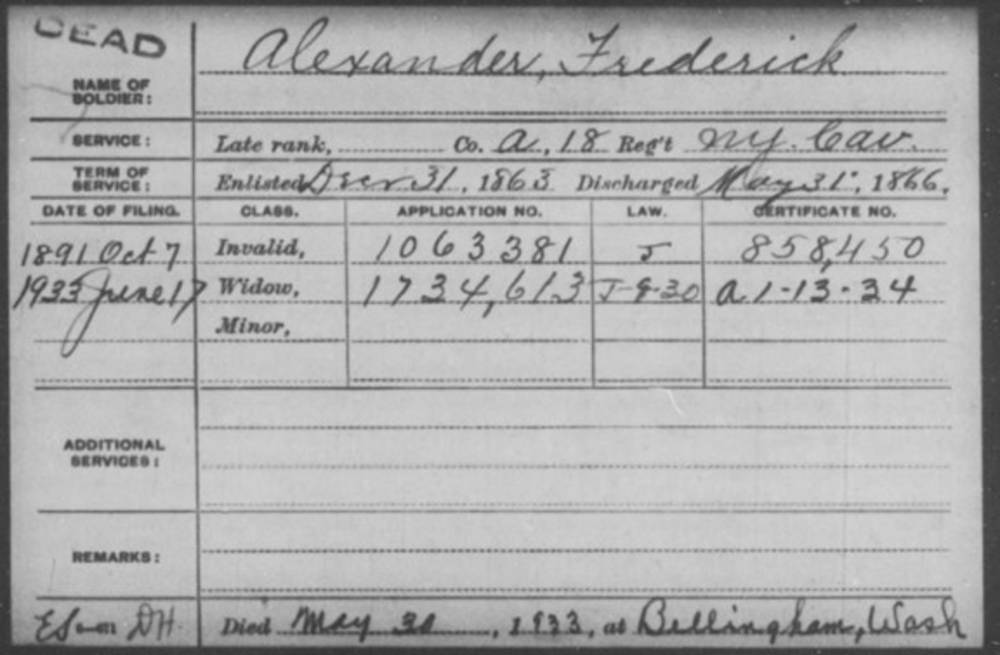 DEAD
Alexander, Frederick
NAME OF SOLDIER:
SERVICE: Late rank, Co. A, 18 Reg't NY. Cav.
TERM OF SERVICE: Enlisted Decr 31, 1863 Discharged May 31, 1866.
DATE OF FILING. CLASS. APPLICATION NO. LAW. CERTIFICATE NO.
1891 Oct 7 Invalid, 1063381 J 858,450
1933 June 17 Widow, 1734,613 J-9-30 A 1-13-34
Minor,
ADDITIONAL SERVICES:
REMARKS:
DH. Died May, 1933, at Bellingham, Wash